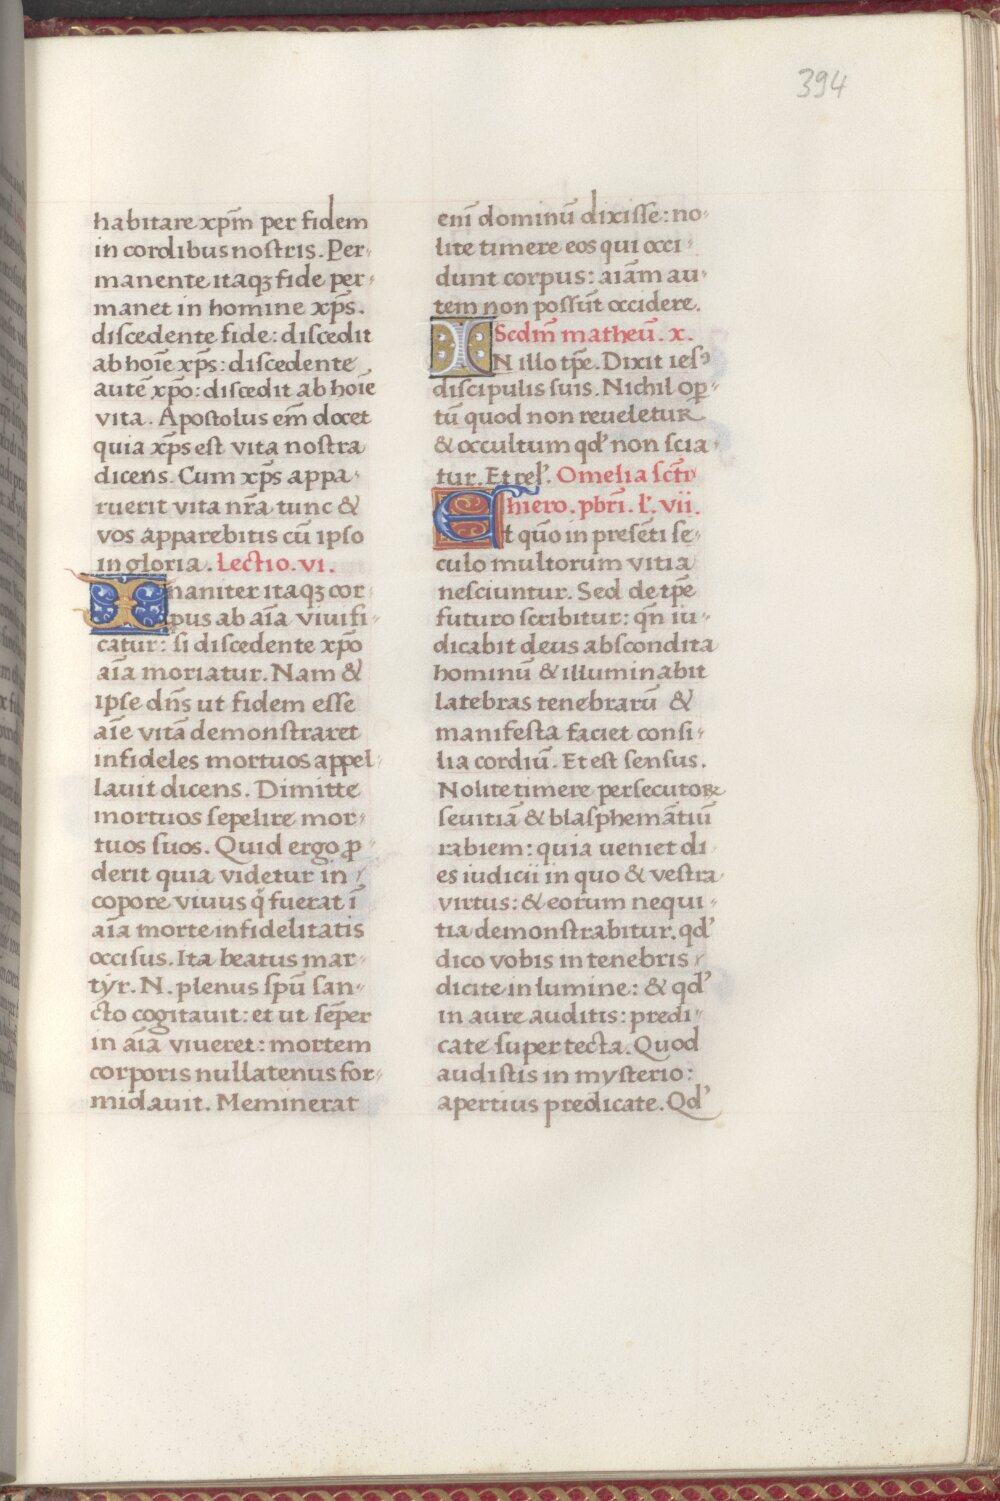 394
habitare xp̄m per fidem
in cordibus nostris. Per-
manente itaqꝫ fide per-
manet in homine xp̄s.
discedente fide: discedit
ab hoīe xp̄s: discedente
autē xp̄o: discedit ab hoīe
vita. Apostolus em̄ docet
quia xp̄s est vita nostra
dicens. Cum xp̄s appa-
ruerit vita nr̄a tunc &
vos apparebitis cū ipso
in gloria. Lectio. vi.
Inaniter itaqꝫ cor-
pus ab aīa vivifi-
catur: si discedente xp̄o
aīa moriatur. Nam &
ipse dn̄s ut fidem esse
aīe vitā demonstraret
infideles mortuos appel-
lavit dicens. Dimitte
mortuos sepelire mor-
tuos suos. Quid ergo ꝓ-
derit quia videtur in
copore vivus q̄ fuerat ī
aīa morte infidelitatis
occisus. Ita beatus mar-
tyr. N. plenus spū san-
cto cogitavit: et ut sēper
in aīa viveret: mortem
corporis nullatenus for-
midavit. Meminerat
enī dominū dixisse: no-
lite timere eos qui occi-
dunt corpus: aīam au-
tem non possūt occidere.
Scdm̄ matheū. x.
IN illo tp̄e. Dixit iesꝰ
discipulis suis. Nichil oꝑ-
tū quod non reveletur
& occultum qđ non scia-
tur. Et rel̓. Omelia sctī
hiero. pbrī. l̓. vii.
Et quō in presēti se-
culo multorum vitia
nesciuntur. Sed de tp̄e
futuro scribitur: qn̄ iu-
dicabit deus abscondita
hominū & illuminabit
latebras tenebrarū &
manifesta faciet consi-
lia cordiū. Et est sensus.
Nolite timere persecutoꝝ
sevitiā & blasphemātiū
rabiem: quia veniet di-
es iudicii in quo & vestra
virtus: & eorum nequi-
tia demonstrabitur. qđ
dico vobis in tenebris
dicite in lumine: & qđ
in aure auditis: predi-
cate super tecta. Quod
audistis in mysterio:
apertius predicate. Qđ